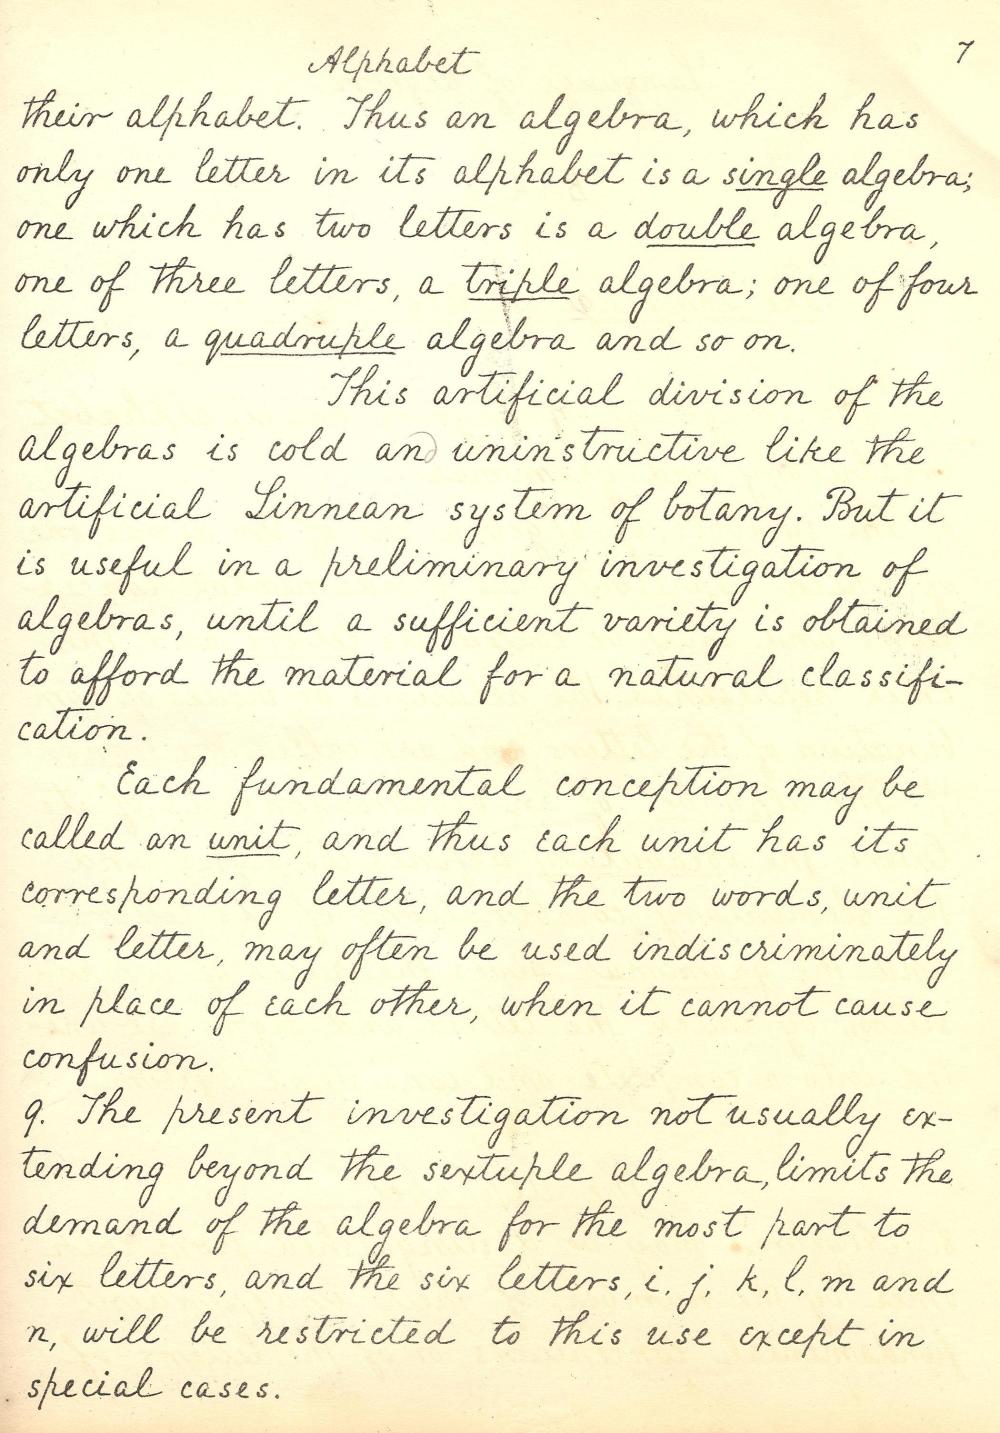 Alphabet
7
their alphabet. Thus an algebra, which has
only one letter in its alphabet is a single algebra;
one which has two letters is a double algebra,
one of three letters, a triple algebra; one of four
letters, a quadruple algebra and so on.
This artificial division of the
algebras is cold and uninstructive like the
artificial Linnean system of botany. But it
is useful in a preliminary investigation of
algebras, until a sufficient variety is obtained
to afford the material for a natural classifi-
cation.
Each fundamental conception may be
called an unit, and thus each unit has its
corresponding letter, and the two words, unit
and letter, may often be used indiscriminately
in place of each other, when it cannot cause
confusion.
9. The present investigation not usually ex-
tending beyond the sextuple algebra, limits the
demand of the algebra for the most part to
six letters, and the six letters, i, j, k, l, m and
n, will be restricted to this use except in
special cases.